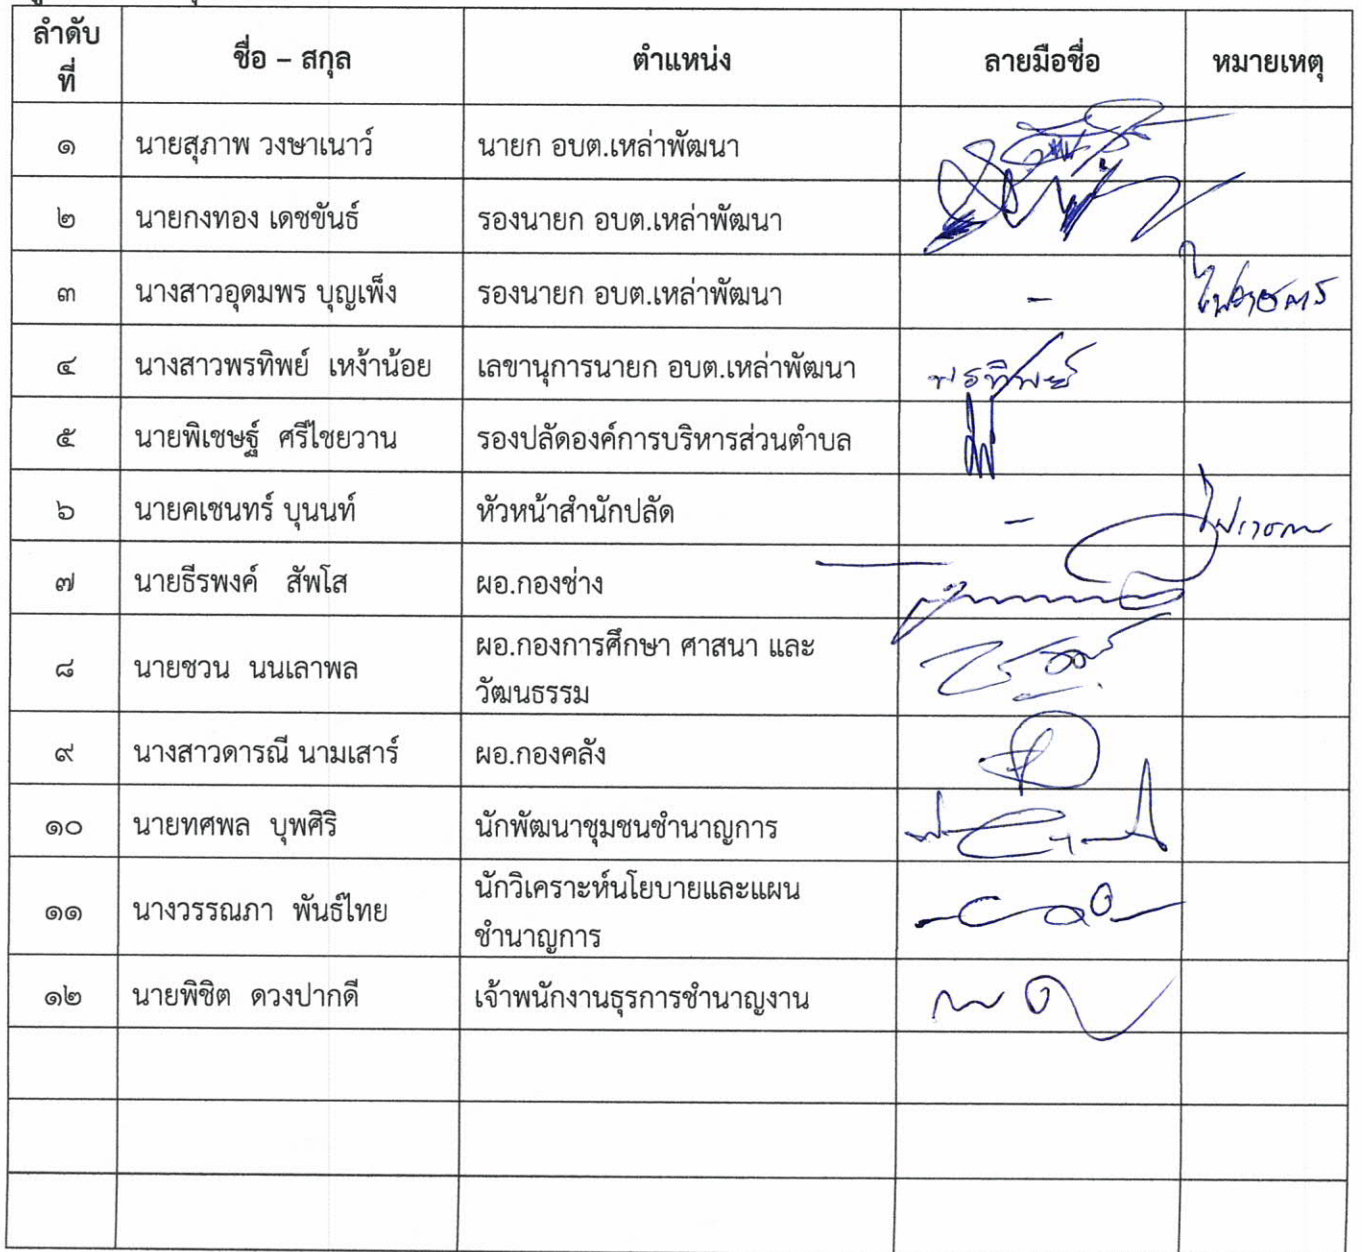 ลำดับ ชื่อ – สกุล ตำแหน่ง ลายมือชื่อ หมายเหตุ
ที่
๑ นายสุภาพ วงษาเนาว์ นายก อบต.เหล่าพัฒนา
๒ นายกงทอง เดชขันธ์ รองนายก อบต.เหล่าพัฒนา
๓ นางสาวอุดมพร บุญเพ็ง รองนายก อบต.เหล่าพัฒนา - ไปราชการ
๔ นางสาวพรทิพย์ เหง้าน้อย เลขานุการนายก อบต.เหล่าพัฒนา พรทิพย์
๕ นายพิเชษฐ์ ศรีไชยวาน รองปลัดองค์การบริหารส่วนตำบล
๖ นายคเชนทร์ บุนนท์ หัวหน้าสำนักปลัด - ไปราชการ
๗ นายธีรพงค์ สัพโส ผอ.กองช่าง
๘ นายชวน นนเลาพล ผอ.กองการศึกษา ศาสนา และ
วัฒนธรรม
๙ นางสาวดารณี นามเสาร์ ผอ.กองคลัง
๑๐ นายทศพล บุพศิริ นักพัฒนาชุมชนชำนาญการ
๑๑ นางวรรณภา พันธ์ไทย นักวิเคราะห์นโยบายและแผน
ชำนาญการ
๑๒ นายพิชิต ดวงปากดี เจ้าพนักงานธุรการชำนาญงาน